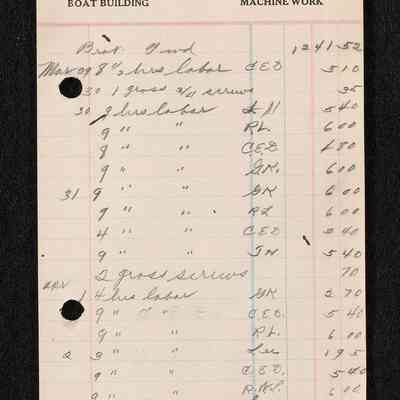 BOAT BUILDING MACHINE WORK
Brot Fwd 1241-52
Mar 29 8 1/2 hrs labor C.E.D 510
30 1 gross 3/4 screws 35
30 9 hrs labor 540
9 " " R.L. 600
9 " " C.E.D
9 " " G.K. 600
31 9 " " G.K 600
9 " " R.L 600
4 " " C.E.D 240
9 " " J.N 540
2 gross screws 70
Apr 1 4 hrs labor G.K 270
9 " " C.E.D. 540
9 " " R.L. 600
2 3 " " Lee 195
9 " " C.E.D. 540
9 " " 600